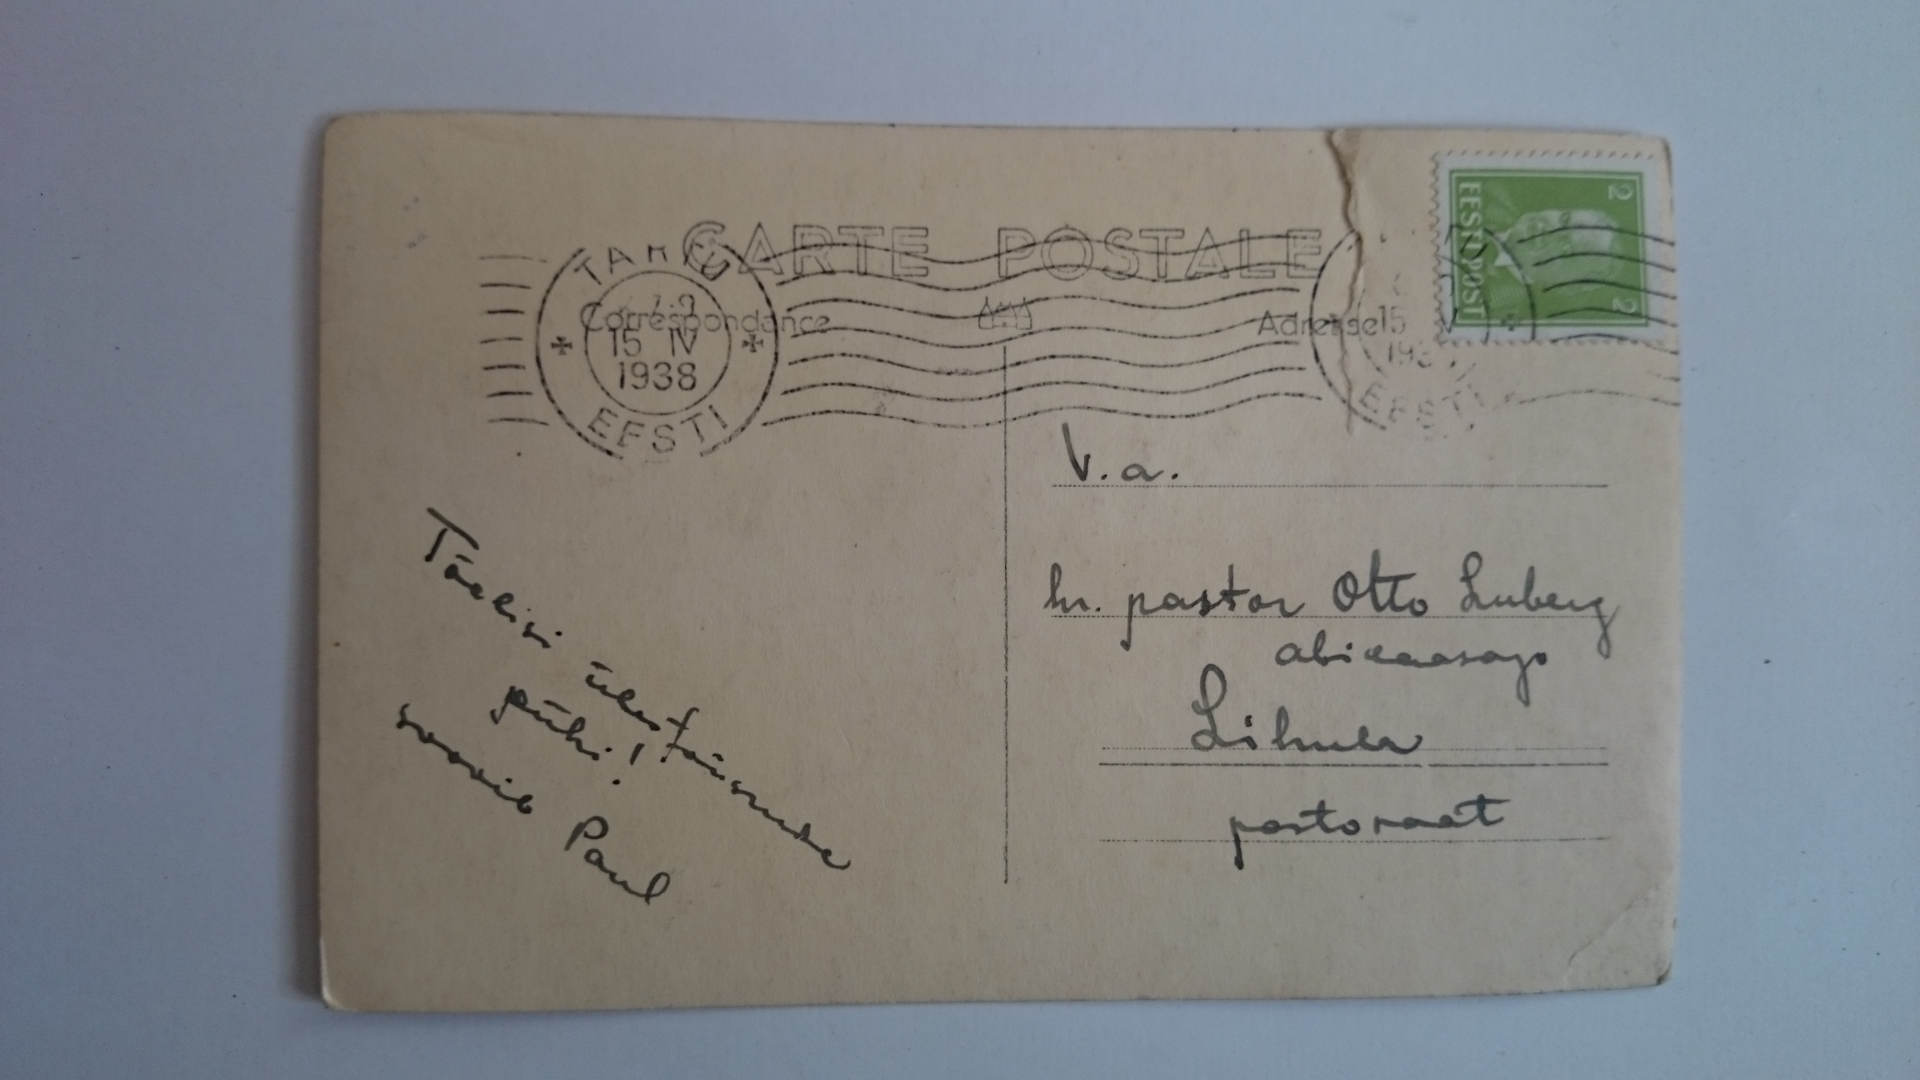 CARTE POSTALE
Correspondance
Adresse
TARTU
15 IV
1938
EESTI
15
EESTI
2
EESTI POST
2
Tõelisi ülestõusmise
pühi!
soovib Paul
V.a.
hr. pastor Otto Luberg
abikaasaga
Lihula
pastoraat